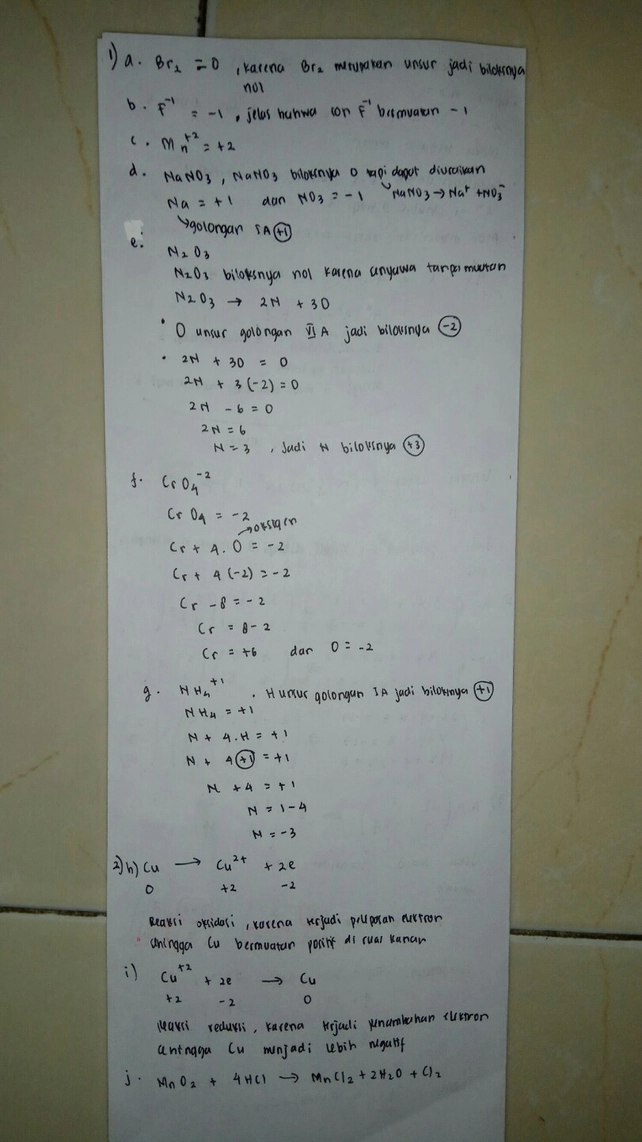 1) a. Br₂ = 0 , karena Br₂ merupakan unsur jadi biloksnya
nol
b. F⁻¹ = -1 , jelas bahwa ion F⁻¹ bermuatan -1
c. Mn⁺² = +2
d. NaNO₃ , NaNO₃ biloksnya 0 tapi dapat diuraikan
Na = +1 dan NO₃ = -1 ↘NaNO₃ → Na⁺ + NO₃⁻
↘golongan IA (+1)
e. N₂O₃
N₂O₃ biloksnya nol karena senyawa tanpa muatan
N₂O₃ → 2N + 3O
• O unsur golongan VIA jadi biloksnya (-2)
• 2N + 3O = 0
2N + 3(-2) = 0
2N - 6 = 0
2N = 6
N = 3 , Jadi N biloksnya (+3)
f. CrO₄⁻²
CrO₄ = -2
→oksigen
Cr + 4. O = -2
Cr + 4 (-2) = -2
Cr - 8 = -2
Cr = 8 - 2
Cr = +6 dan O = -2
g. NH₄⁺¹ . H unsur golongan IA jadi biloksnya (+1)
NH₄ = +1
N + 4.H = +1
N + 4(+1) = +1
N + 4 = +1
N = 1 - 4
N = -3
2) h) Cu → Cu²⁺ + 2e
0 +2 -2
Reaksi oksidasi , karena terjadi pelepasan elektron
sehingga Cu bermuatan positif di ruas kanan
i) Cu⁺² + 2e → Cu
+2 -2 0
Reaksi reduksi , karena terjadi penambahan elektron
sehingga Cu menjadi lebih negatif
j. MnO₂ + 4HCl → MnCl₂ + 2H₂O + Cl₂